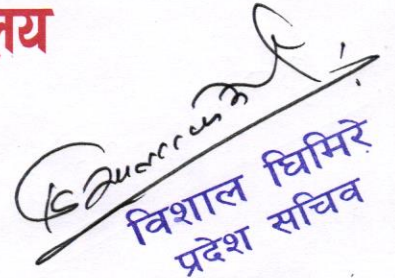 लय
विशाल घिमिरे
प्रदेश सचिव